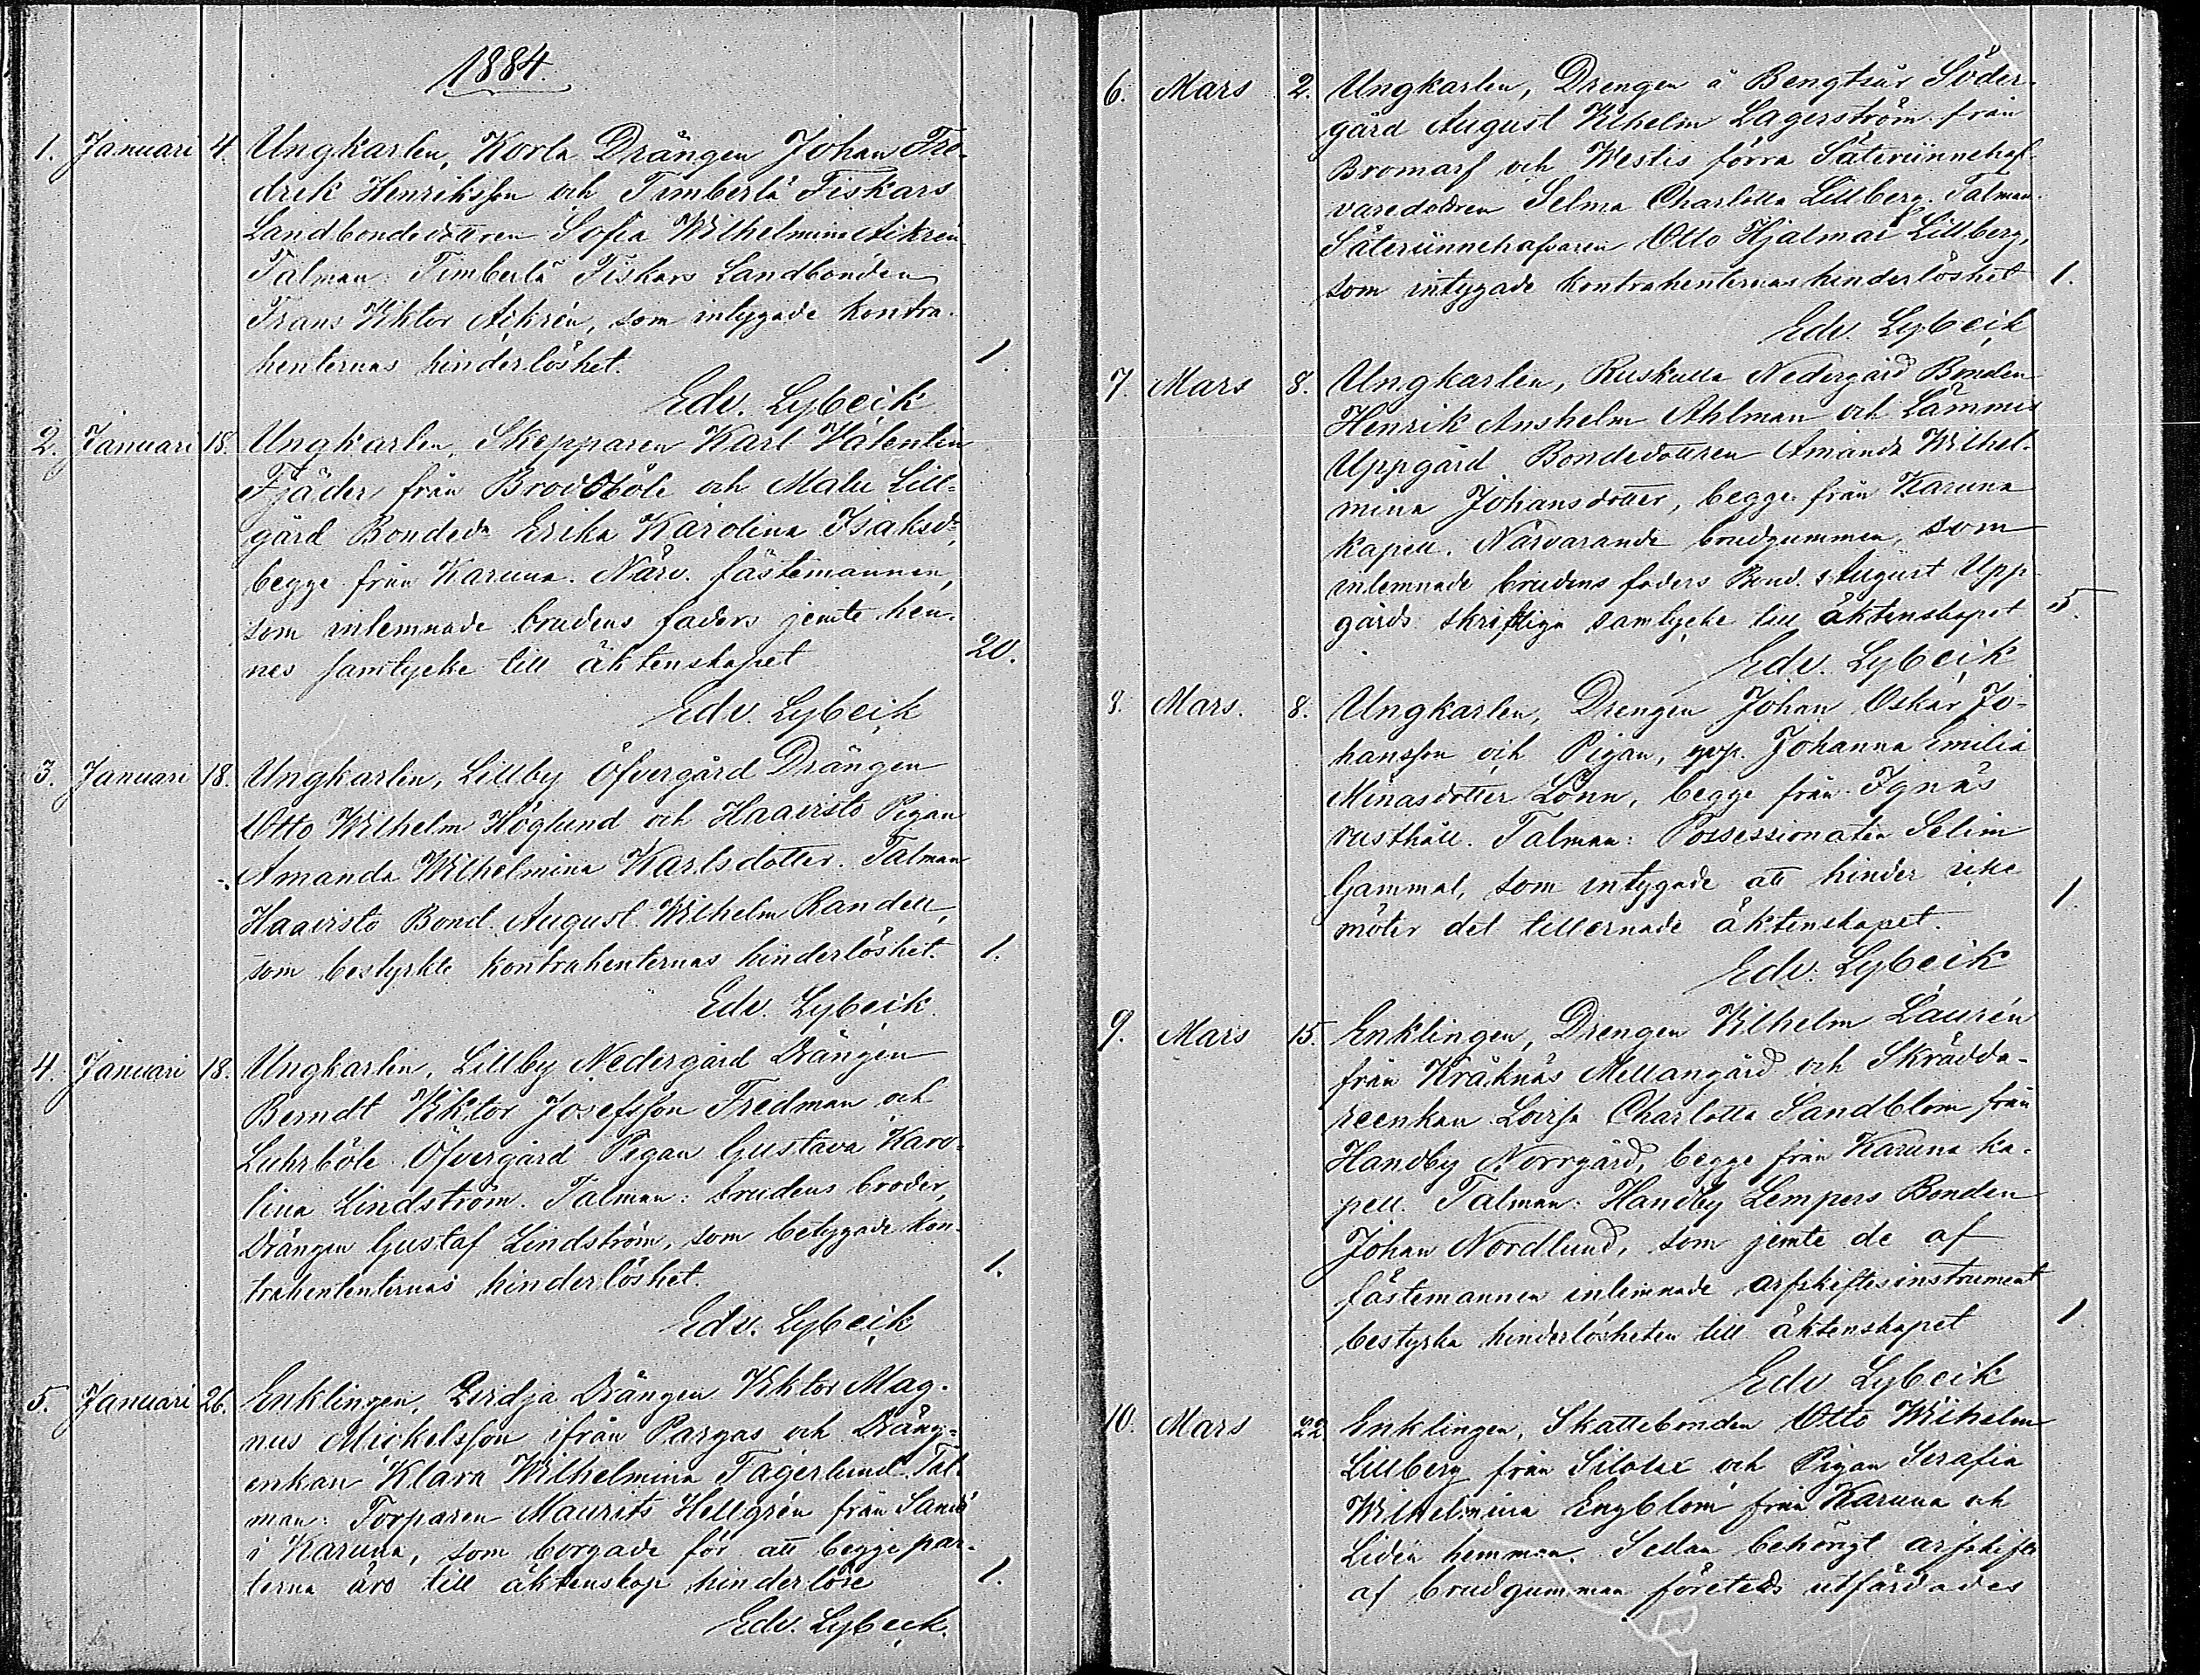 1884.
1. Januari 4. Ungkarlen, Korla Drängen Johan Fre-
drik Henriksson och Timberlä Fiskars
Landbondedottren Sofia Wilhelmina Aikrén
Talman: Timberlä Fiskars Landbonden
Frans Viktor Aikrén, som intygade kontra-
henternas hinderlöshet. 1.
Edv. Lybeck
2. Januari 18. Ungkarlen, Skepparen Karl Valentin
Fjäder från Brovdböle och Malu Lill-
gård Bonded. Erika Karolina Isaksdr,
begge från Karuna. Närv. fästemannen,
som inlemnade brudens faders jemte hen-
nes samtycke till äktenskapet 20.
Edv. Lybeck
3. Januari 18. Ungkarlen, Lillby Öfvergård Drängen
Otto Wilhelm Höglund och Haavisto Pigan
Amanda Wilhelmina Karlsdotter. Talman
Haavisto Bond. August Wilhelm Randell,
som bestyrkte kontrahenternas hinderlöshet. 1.
Edv. Lybeck
4. Januari 18. Ungkarlen, Lillby Nedergård Drängen
Berndt Viktor Josefsson Fredman och
Luhrböle Öfvergård Pigan Gustava Karo-
lina Lindström. Talman: brudens broder,
Drängen Gustaf Lindström, som betygade kon-
trahententernas hinderlöshet. 1.
Edv. Lybeck
5. Januari 26. Enklingen, Drängen Viktor Mag-
nus Mickelsson ifrån Pargas och Dräng-
enkan Klara Wilhelmina Fagerlund. Tal-
man: Torparen Maurits Hellgrén från Sandö
i Karuna, som borgade för att begge par-
terna äro till äktenskap hinderlöse 1.
Edv. Lybeck.
6. Mars 2. Ungkarlen, Drengen å Bengtsår Söder-
gård August Vilhelm Lagerström från
Bromarf och Westis förra Säteriinnehaf-
varedottren Selma Charlotta Lillberg. Talman
Säteriinnehafvaren Otto Hjalmar Lillberg,
som intygade kontrahenternas hinderlöshet 1.
Edv. Lybeck
7. Mars 8. Ungkarlen, Ruskulla Nedergård Bonden
Henrik Anshelm Ahlman och Lämmis
Uppgård Bondedottren Amanda Wilhel-
mina Johansdotter, begge från Karuna
kapell. Närvarande brudgummen, som
inlemnade brudens faders Bond. August Upp-
gårds skriftliga samtycke till äktenskapet 5.
Edv. Lybeck
8. Mars. 8. Ungkarlen, Drengen Johan Oskar Jo-
hansson och Pigan, Johanna Emilia
Minasdotter Lönn, begge från Ignäs
rusthåll. Talman: Possessionaten Selim
Gammal, som intygade att hinder icke
möter det tillernade äktenskapet. 1.
Edv. Lybeck
9. Mars 15. Enklingen, Drengen Vilhelm Laurén
från Kråknäs Mellangård och Skrädda-
reenkan Lovisa Charlotta Sandblom från
Handby Norrgård, begge från Karuna ka-
pell. Talman: Handby Lempers Bonden
Johan Nordlund, som jemte de af
fästemannen inlemnade arfskiftesinstrument
bestyrka hinderlösheten till äktenskapet 1.
Edv. Lybeck
10. Mars 22. Enklingen, Skattebonden Otto Wilhelm
Lillberg från Silolax och Pigan Serafia
Wilhelmina Engblom från Karuna och
Lidén hemman. Sedan behörigt arfskifte
af brudgumman företeds utfärdades